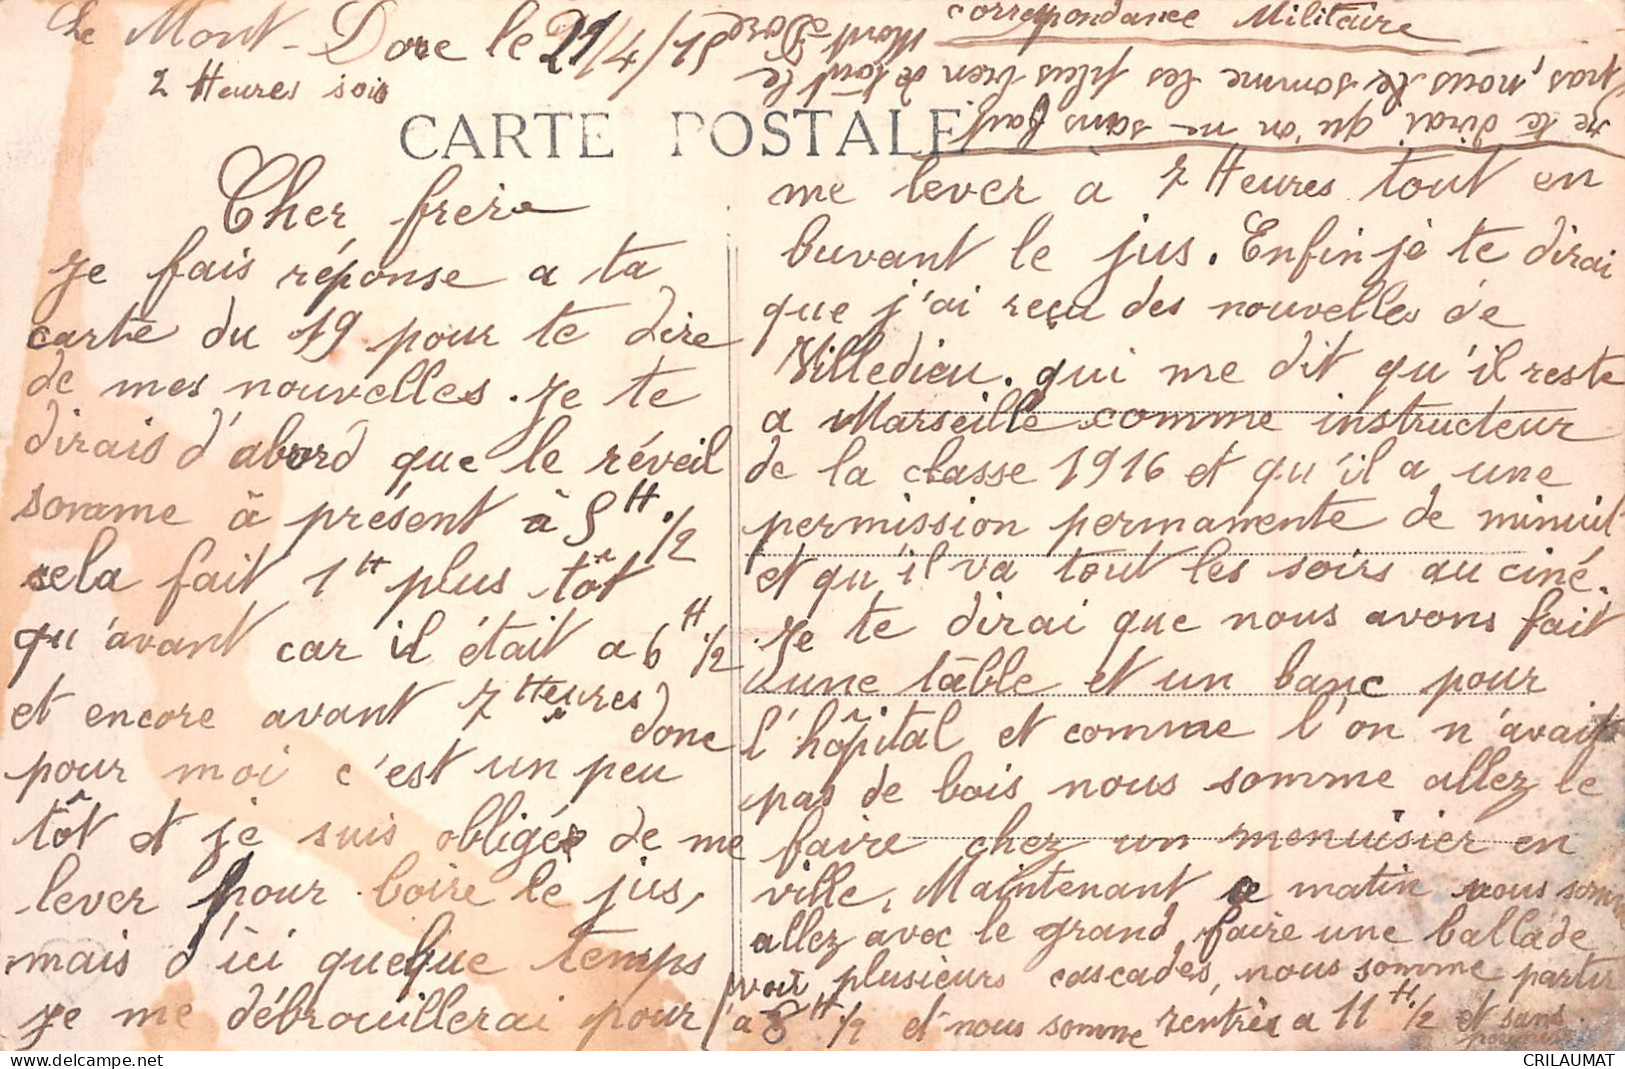 Le Mont-Dore le 21/4/15
2 Heures soir
Correspondance Militaire
CARTE POSTALE
Cher frère
Je fais réponse a ta
carte du 19 pour te dire
de mes nouvelles. Je te
dirais d'abord que le réveil
sonnme à présent à 5 H. 1/2
cela fait 1 H plus tôt
qu'avant car il était a 6 H. 1/2
et encore avant 7 Heures donc
pour moi c'est un peu
tôt et je suis obligé de me
lever pour boire le jus,
mais d'ici quelque temps
je me débrouillerai pour
me lever à 7 Heures tout en
buvant le jus. Enfin je te dirai
que j'ai reçu des nouvelles de
Villedieu. qui me dit qu'il reste
a Marseille comme instructeur
de la classe 1916 et qu'il a une
permission permamente de minuit
et qu'il va tout les soirs au ciné.
Je te dirai que nous avons fait
une table et un banc pour
l'hôpital et comme l'on n'avait
pas de bois nous somme allez le
faire chez un menuisier en
ville, Maintenant ce matin nous somme
allez avec le grand, faire une ballade
voir plusieurs cascades, nous somme partir
a 8 H. 1/2 et nous somme rentrés a 11 H 1/2 et sans
je te dirai qu'on ne sans fait
pas, nous le somme les plus bien de tout le
Mont Dore
CRILAUMAT